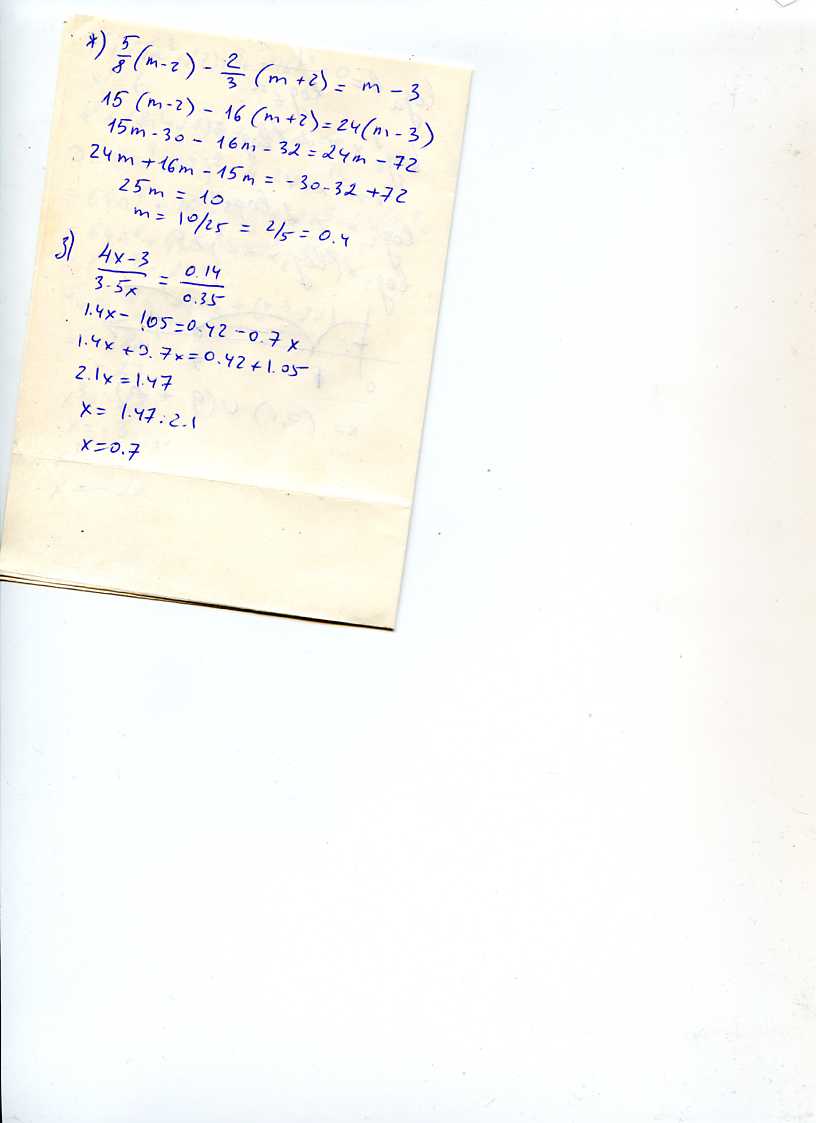 ж) 5/8 (m-2) - 2/3 (m+2) = m - 3
15 (m-2) - 16 (m+2) = 24(m-3)
15m - 30 - 16m - 32 = 24m - 72
24m + 16m - 15m = -30-32+72
25m = 10
m = 10/25 = 2/5 = 0.4
з) (4x-3)/(3-5x) = 0.14/0.35
1.4x - 1.05 = 0.42 - 0.7x
1.4x + 0.7x = 0.42 + 1.05
2.1x = 1.47
x = 1.47 : 2.1
x = 0.7